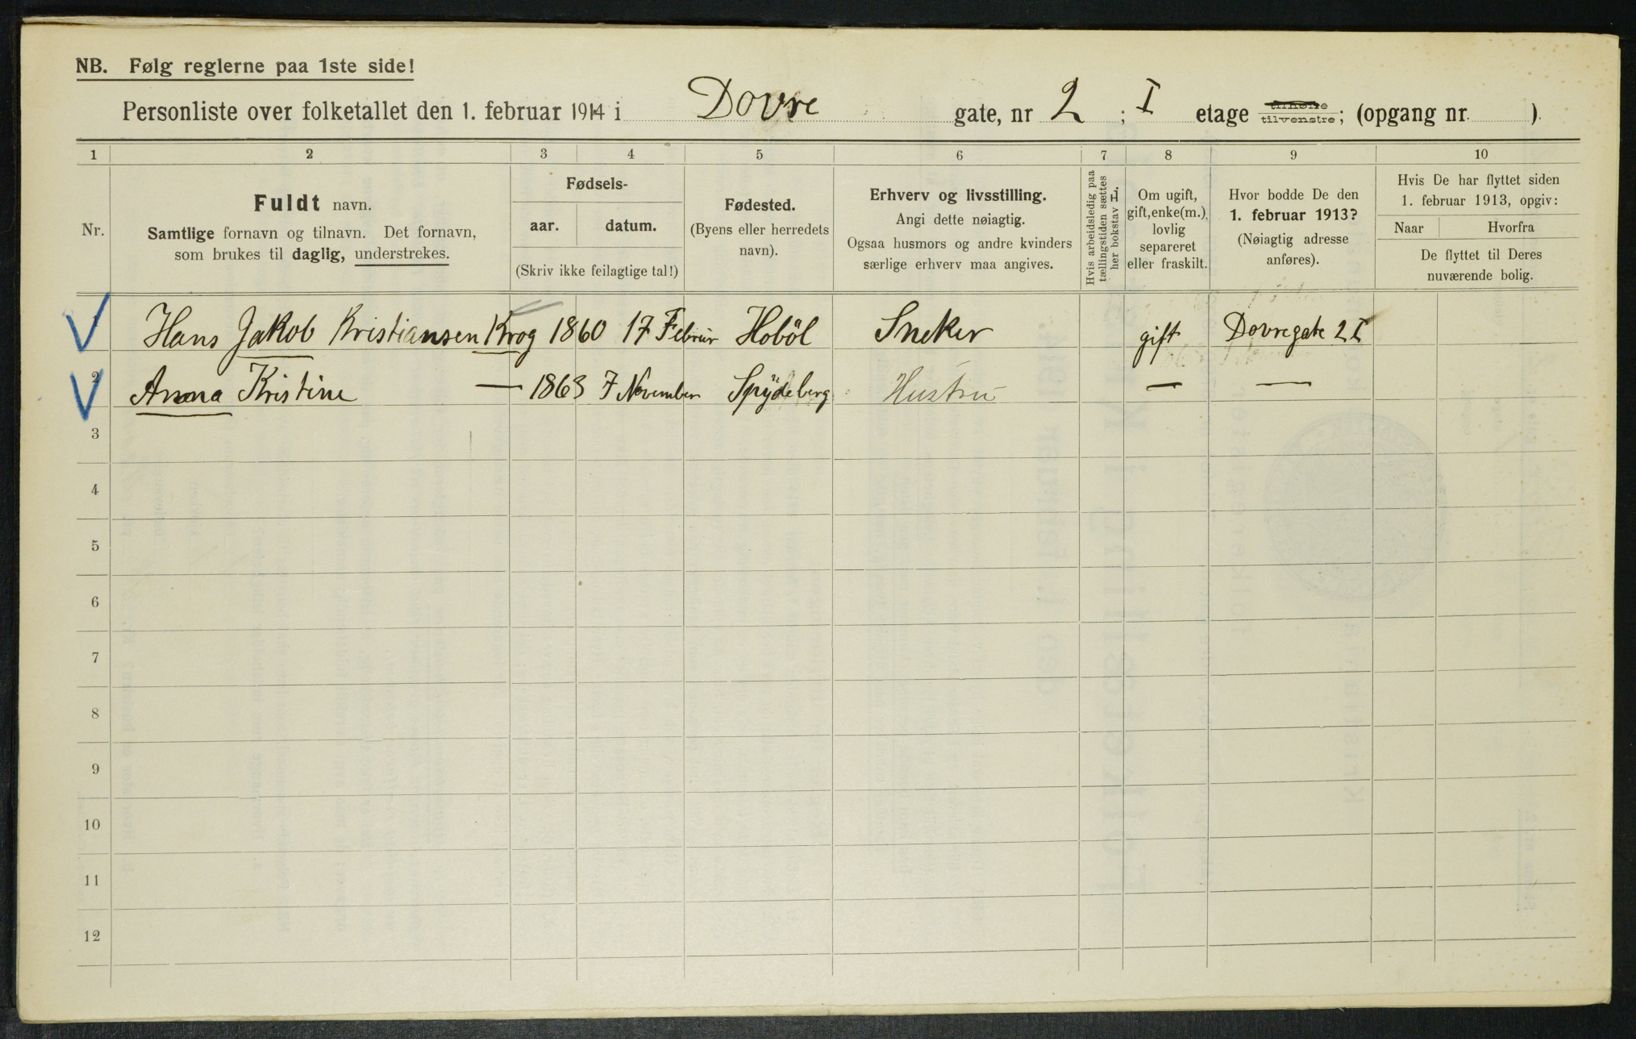 NB. Følg reglerne paa 1ste side!
Personliste over folketallet den 1. februar 1914 i Dovre gate, nr 2 ; I etage tilhøire tilvenstre; (opgang nr. ).
1 2 3 4 5 6 7 8 9 10
Nr.
Fuldt navn.
Samtlige fornavn og tilnavn. Det fornavn,
som brukes til daglig, understrekes.
Fødsels-
aar. datum.
(Skriv ikke feilagtige tal!)
Fødested.
(Byens eller herredets
navn).
Erhverv og livsstilling.
Angi dette nøiagtig.
Ogsaa husmors og andre kvinders
særlige erhverv maa angives.
Hvis arbeidsledig paa
tællingstiden sættes
her bokstav L.
Om ugift,
gift, enke(m.),
lovlig
separeret
eller fraskilt.
Hvor bodde De den
1. februar 1913?
(Nøiagtig adresse
anføres).
Hvis De har flyttet siden
1. februar 1913, opgiv:
Naar Hvorfra
De flyttet til Deres
nuværende bolig.
1 Hans Jakob Kristiansen Krog 1860 17 Februr Hobøl Sneker gift Dovregate 2 I
2 Anna Kristine — 1863 7 November Spydeberg Hustru — —
3
4
5
6
7
8
9
10
11
12